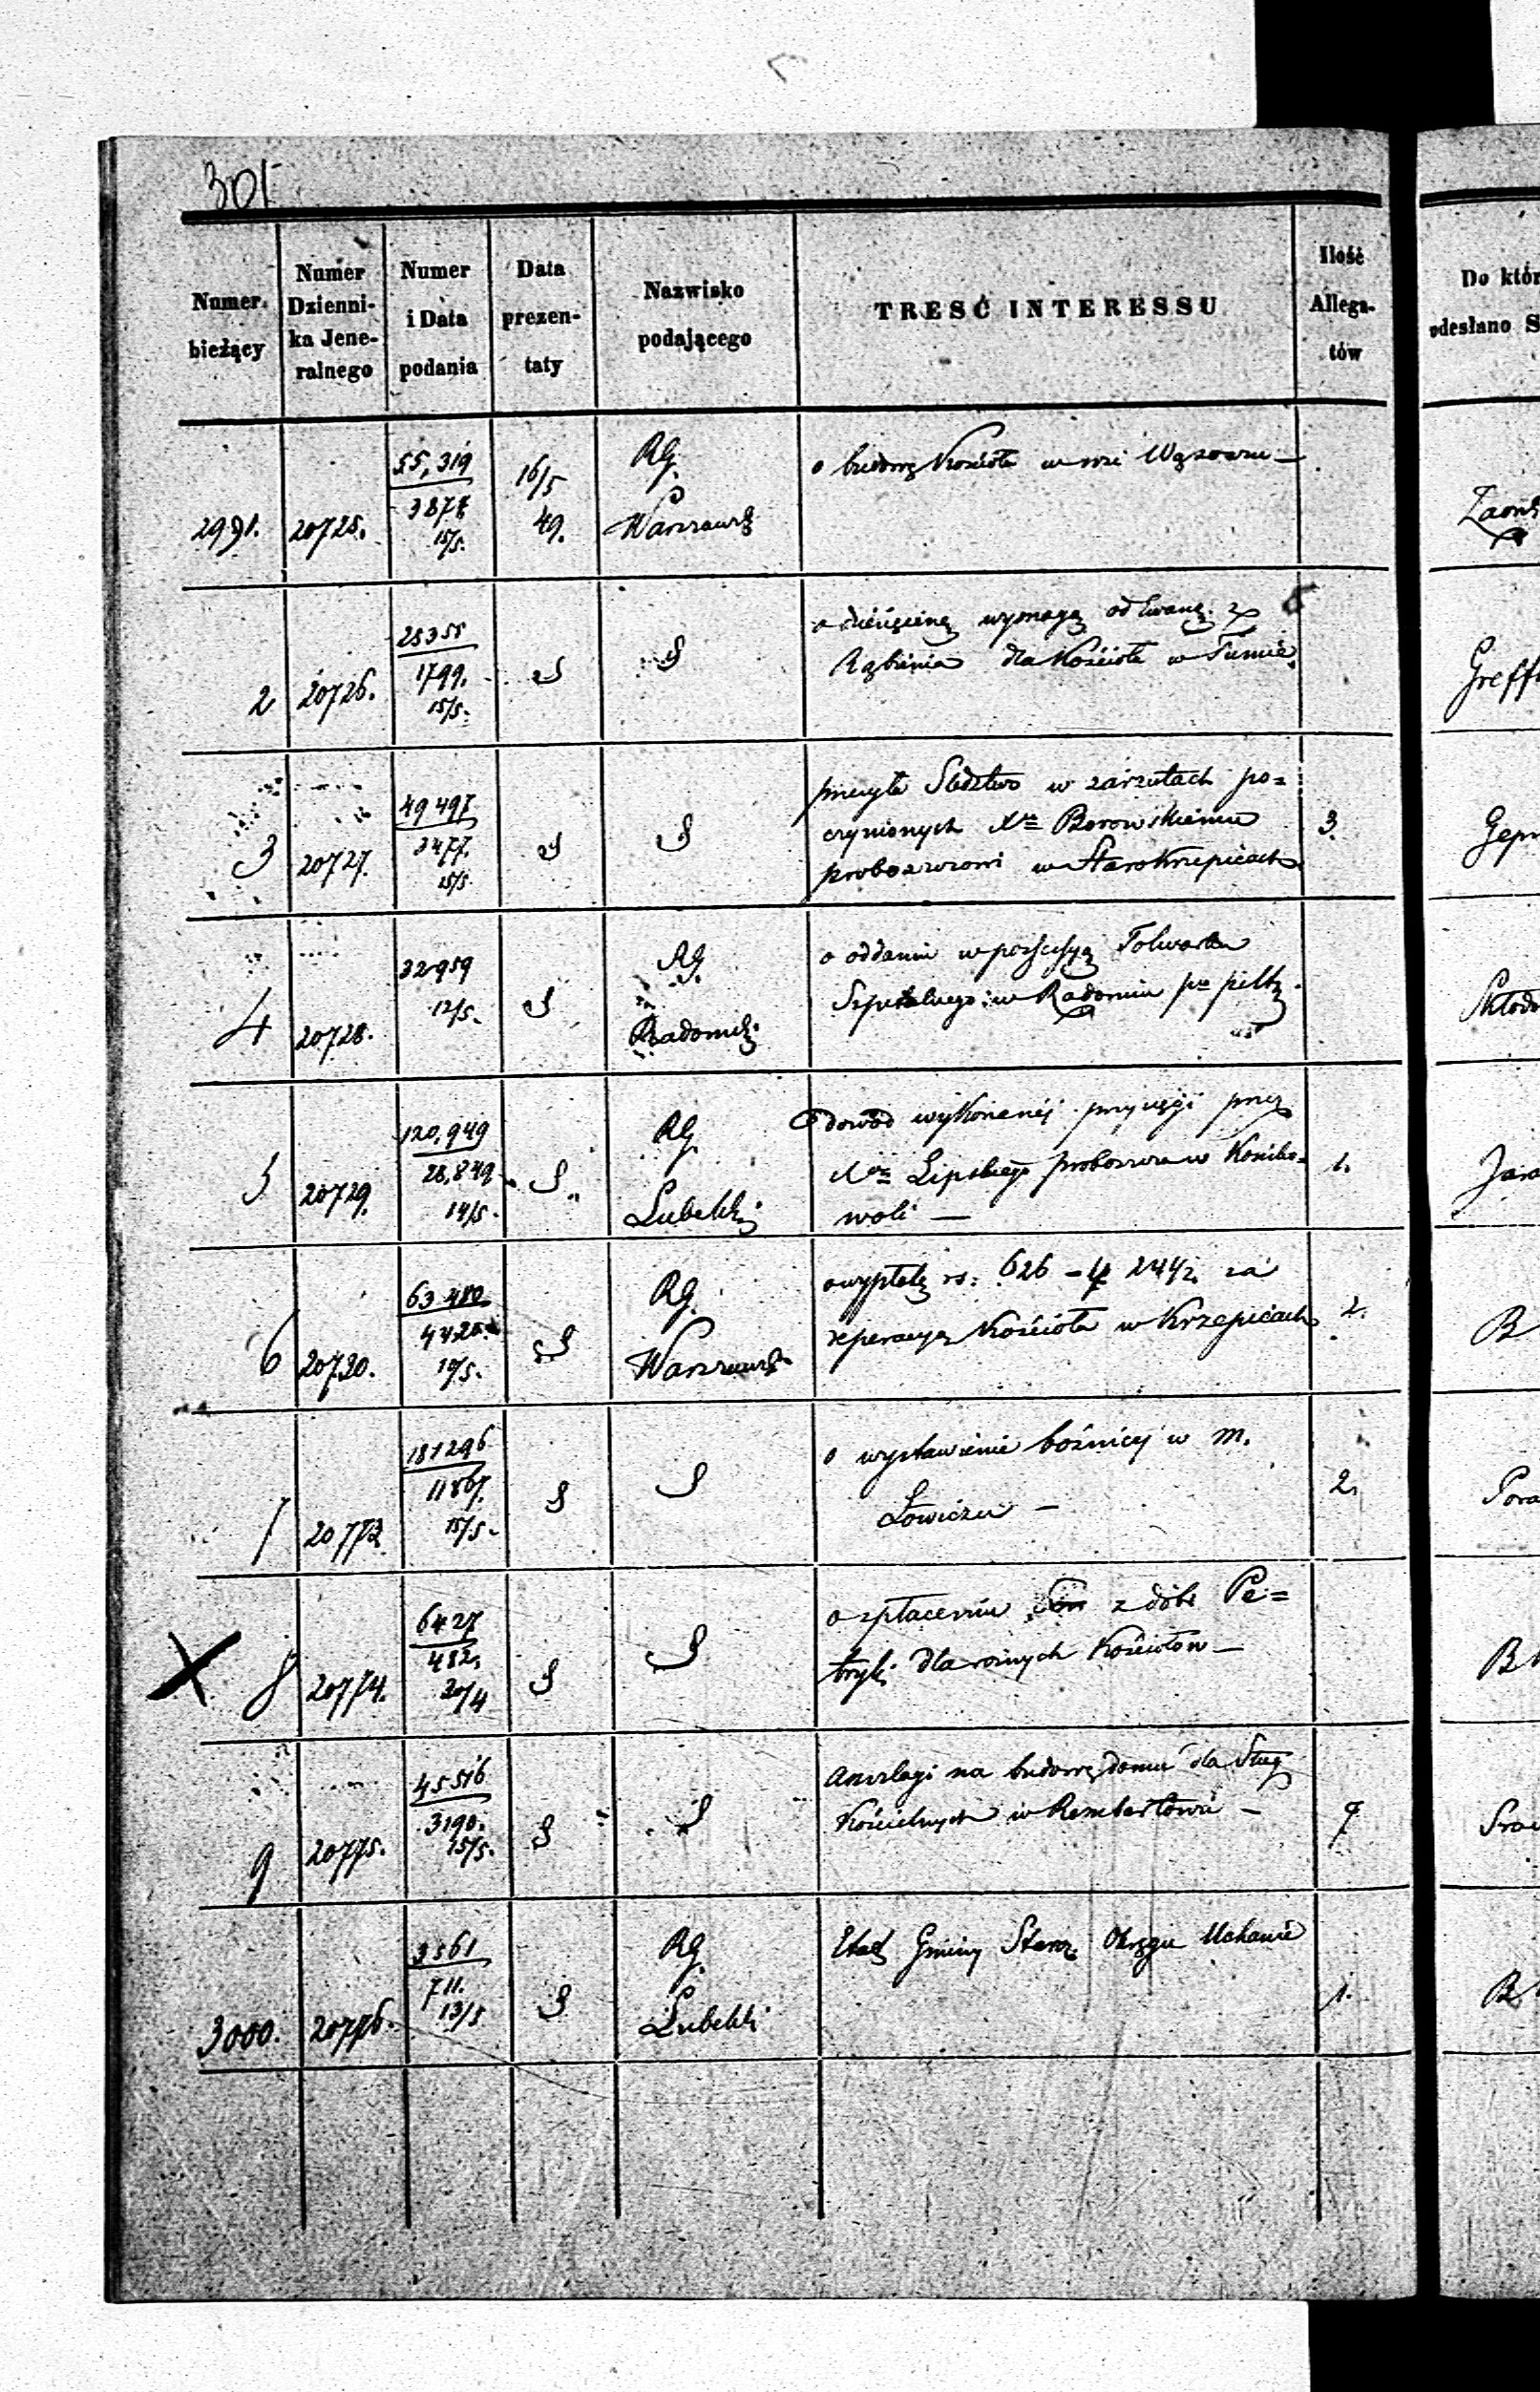 301
Numer bieżący
Numer Dzienni-ka Jene-ralnego
Numer i Data podania
Data prezen-taty
Nazwisko podającego
TREŚĆ INTERESSU
Ilość Allega-tów
Do któr
odesłano S
2991. 20725. 55,319 15/5. 16/5 49. RG. Warszawsk o budowę Kościoła w wsi
2 20726. 1799. 15/5. S S wymaga
dla Kościoła w Tumie
3 20727. 49497 3477. 15/5. S S Śledztwo w zarzutach po=
czynionych Xu Borowskiemu
proboszczowi w Starokrzepicach 3.
4 20728. 32959 12/5. S RG. Radomsk. o oddaniu w possessyą Folwarku
Szpitalnego w Radomiu
5 20729. 120,949 28,849 14/5. S RG. Lubelski dowód wykonanéj przysięgi przez
Xa Lipskiego proboszcza w
woli — 1.
6 20730. 63480 10/5. S RG. Warszawsk o wypłatę rs: 626 za
reperacyą Kościoła w Krzepicach 2.
7 20773 181296 15/5. S S o wystawienie bożnicy w m.
Łowiczu — 2.
8 20774. 6427 482. 20/4 S S o spłaceniu z dóbr Pe=
tryki dla różnych Kościołów —
9 20775. 45516 3190. 15/5. S S Anszlagi na budowę domu dla Sług
Kościelnych w Rembertowie — 7
3000. 20776. 3561 711. 13/5 S RG. Lubelski Etat Gminy Okręgu 1.